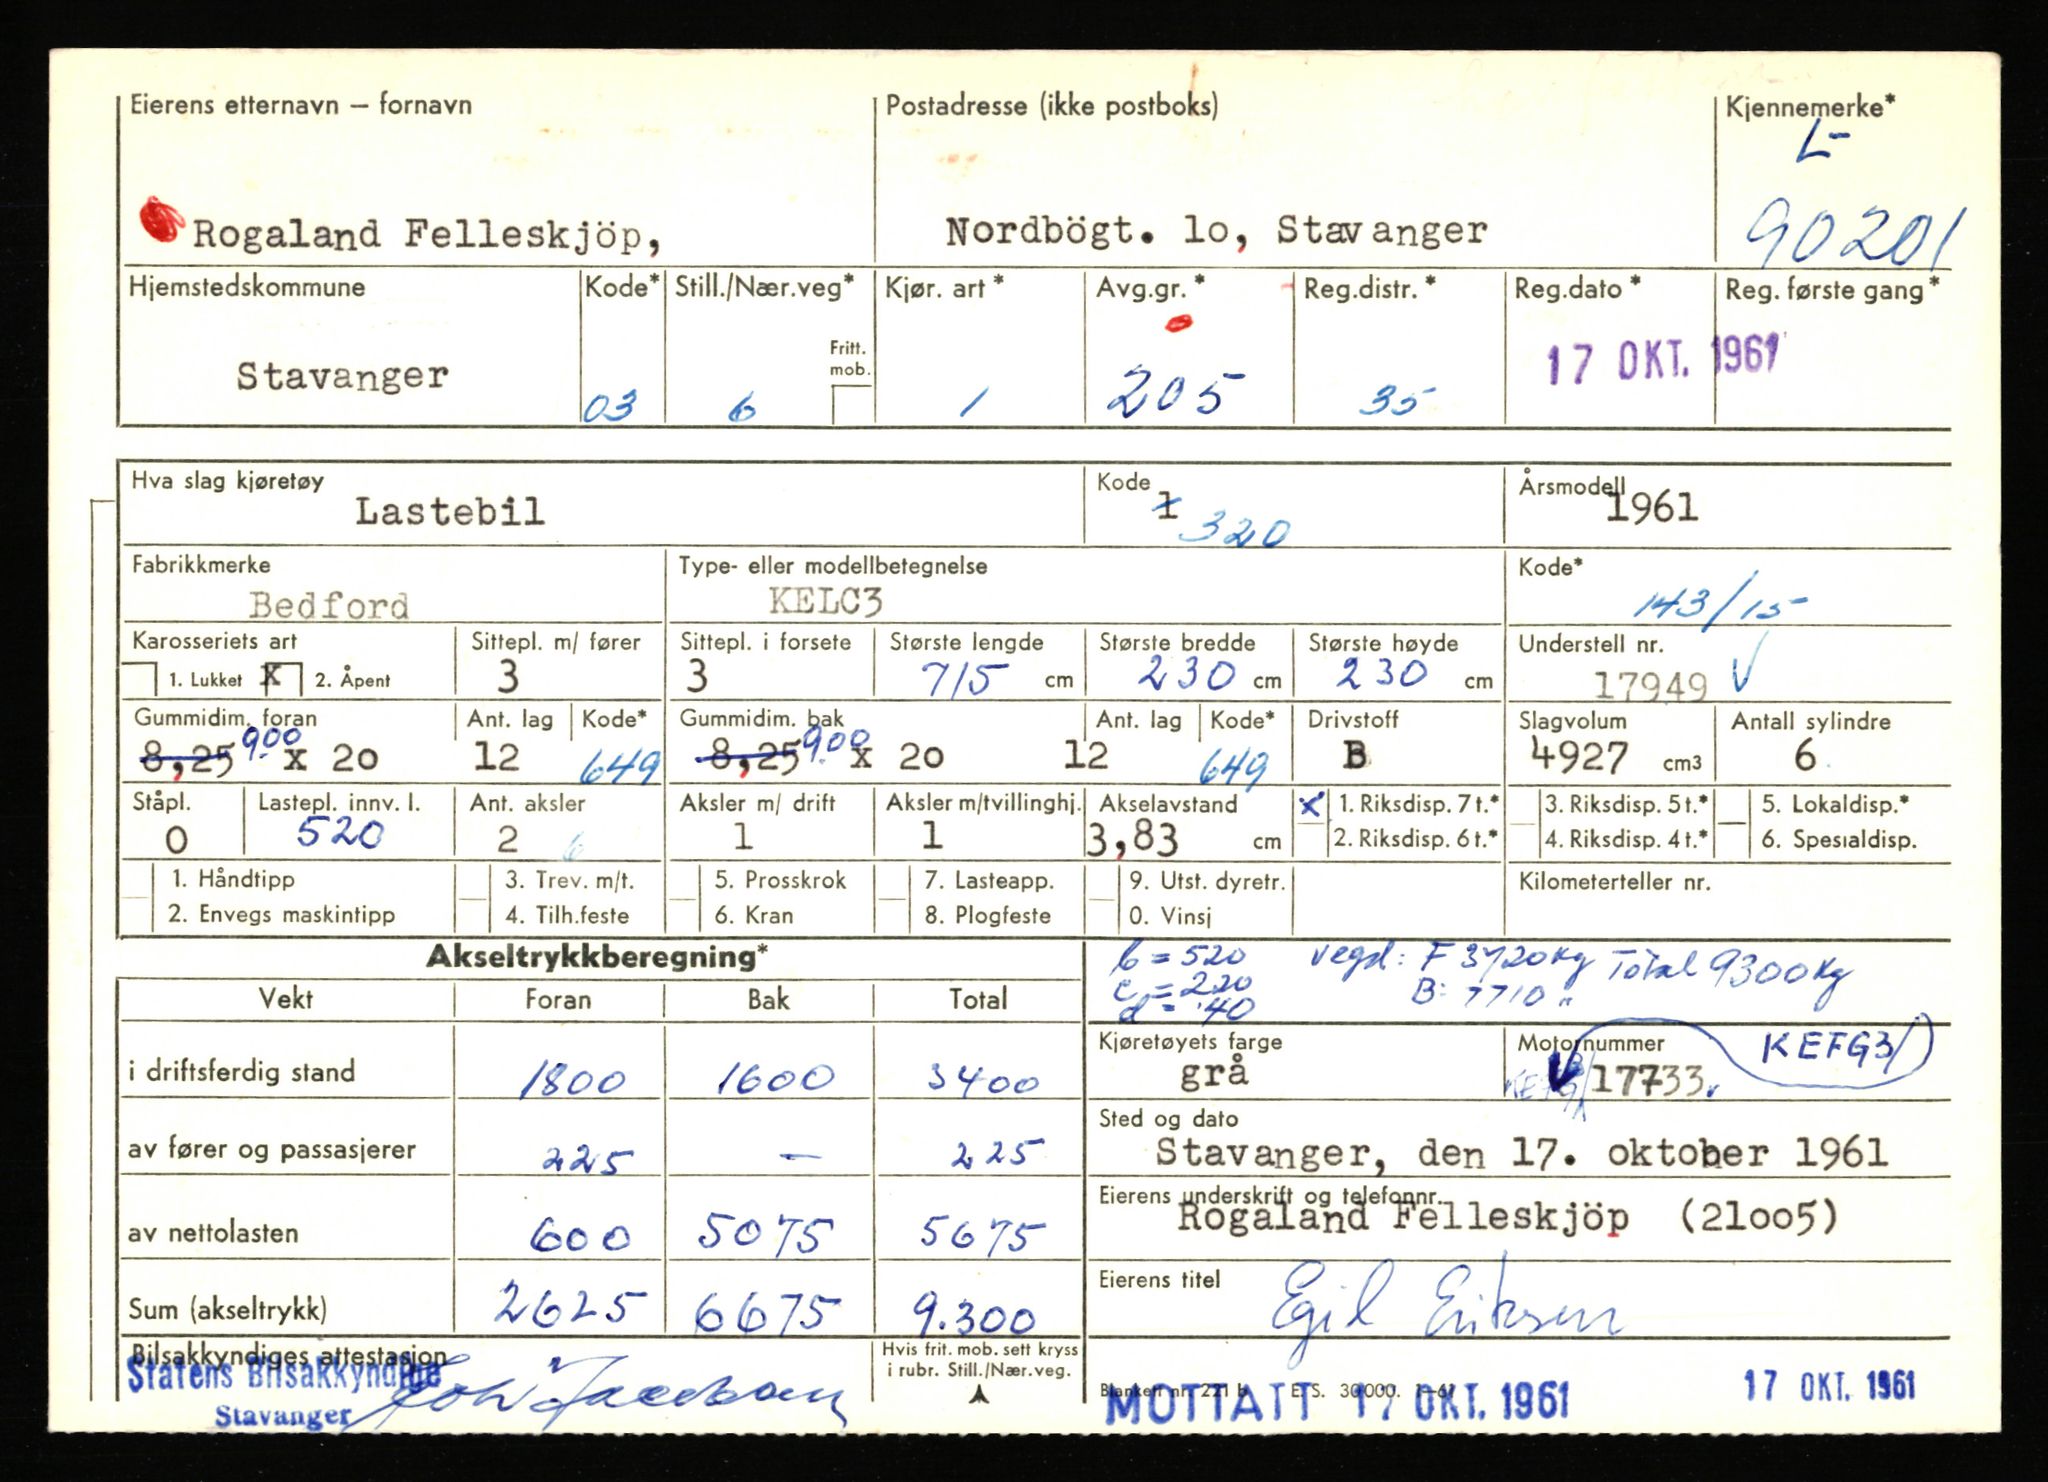 Eierens etternavn — fornavn
Postadresse (ikke postboks)
Kjennemerke*
L-
90201
Rogaland Felleskjöp,
Nordbögt. lo, Stavanger
Hjemstedskommune
Kode*
Still./Nær.veg*
Kjør. art *
Avg.gr. *
Reg.distr. *
Reg.dato *
Reg. første gang*
Fritt.
mob.
Stavanger
03
6
1
205
35
17 OKT. 1961
Hva slag kjøretøy
Lastebil
Kode
1
320
Årsmodell
1961
Fabrikkmerke
Bedford
Type- eller modellbetegnelse
KELC3
Kode*
143/15
Karosseriets art
1. Lukket X 2. Åpent
Sittepl. m/ fører
3
Sittepl. i forsete
3
Største lengde
715 cm
Største bredde
230 cm
Største høyde
230 cm
Understell nr.
17949
Gummidim. foran
8,25 9.00 x 20
Ant. lag
12
Kode*
649
Gummidim. bak
8,25 9.00 x 20
Ant. lag
12
Kode*
649
Drivstoff
B
Slagvolum
4927 cm3
Antall sylindre
6
Ståpl.
0
Lastepl. innv. l.
520
Ant. aksler
2 6
Aksler m/ drift
1
Aksler m/tvillinghj.
1
Akselavstand
3,83 cm
x 1. Riksdisp. 7 t.*
2. Riksdisp. 6 t.*
3. Riksdisp. 5 t.*
4. Riksdisp. 4 t.*
5. Lokaldisp.*
6. Spesialdisp.
1. Håndtipp
2. Envegs maskintipp
3. Trev. m/t.
4. Tilh.feste
5. Prosskrok
6. Kran
7. Lasteapp.
8. Plogfeste
9. Utst. dyretr.
0. Vinsj
Kilometerteller nr.
Akseltrykkberegning*
b = 520
c = 220
d = 40
vegd: F 3720 kg Total 9300 kg
B: 7710 "
Vekt Foran Bak Total
i driftsferdig stand 1800 1600 3400
av fører og passasjerer 225 — 225
av nettolasten 600 5075 5675
Sum (akseltrykk) 2625 6675 9.300
Kjøretøyets farge
grå
Motornummer
17733
KEFG3/
Sted og dato
Stavanger, den 17. oktober 1961
Eierens underskrift og telefonnr.
Rogaland Felleskjöp (21oo5)
Eierens titel
Egil Eriksen
Bilsakkyndiges attestasjon
Statens Bilsakkyndige
Stavanger
Hvis frit. mob. sett kryss
i rubr. Still./Nær.veg.
Blankett nr. 221 b E. S. 30.000. 1-61
MOTTATT 17 OKT. 1961
17 OKT. 1961